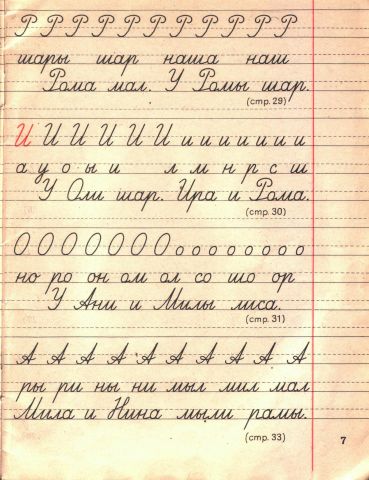 Р Р Р Р Р Р Р Р Р Р Р
шары шар наша наш
Рома мал. У Ромы шар.
(стр. 29)
И И И И И И и и и и и и и
а у о ы и л м н р с ш
У Оли шар. Ира и Рома.
(стр. 30)
О О О О О О О о о о о о о о о
но ро он ом ол со шо ор
У Ани и Милы лиса.
(стр. 31)
А А А А А А А А А А
ры ри ны ни мыл мил мал
Мила и Нина мыли рамы.
(стр. 33)
7